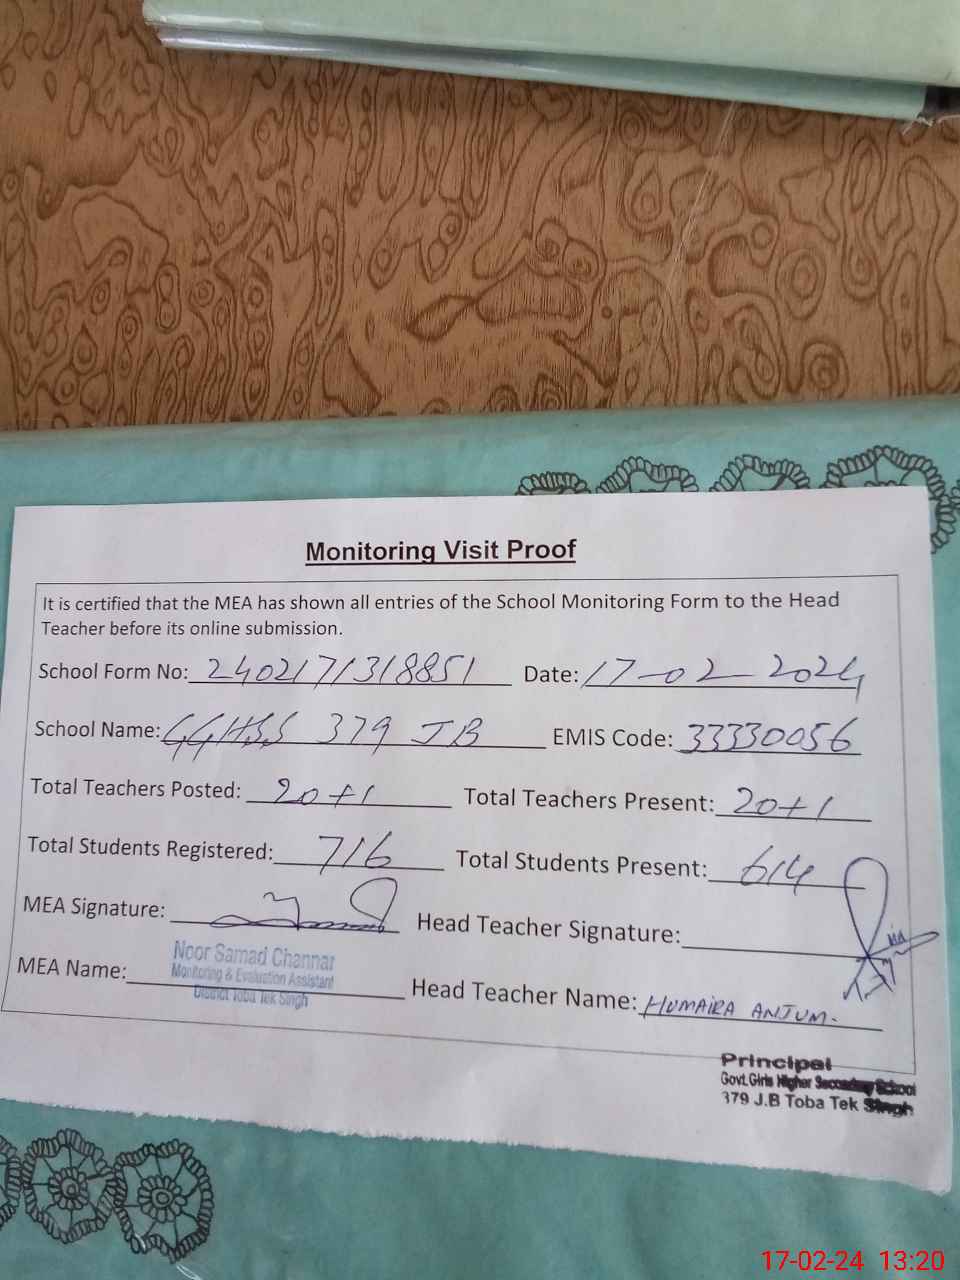 Monitoring Visit Proof
It is certified that the MEA has shown all entries of the School Monitoring Form to the Head
Teacher before its online submission.
School Form No: 2402171318851 Date: 17-02-2024
School Name: GGHSS 379 JB EMIS Code: 33330056
Total Teachers Posted: 20+1 Total Teachers Present: 20+1
Total Students Registered: 716 Total Students Present: 614
MEA Signature: Head Teacher Signature:
MEA Name: Noor Samad Channar
Monitoring & Evaluation Assistant
District Toba Tek Singh
Head Teacher Name: HUMAIRA ANJUM.
Principal
Govt. Girls Higher Secondary School
379 J.B Toba Tek Singh
17-02-24 13:20